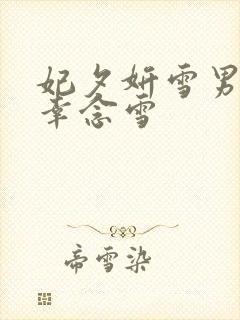 妃夕妍雪男
幸念雪
帝雪染